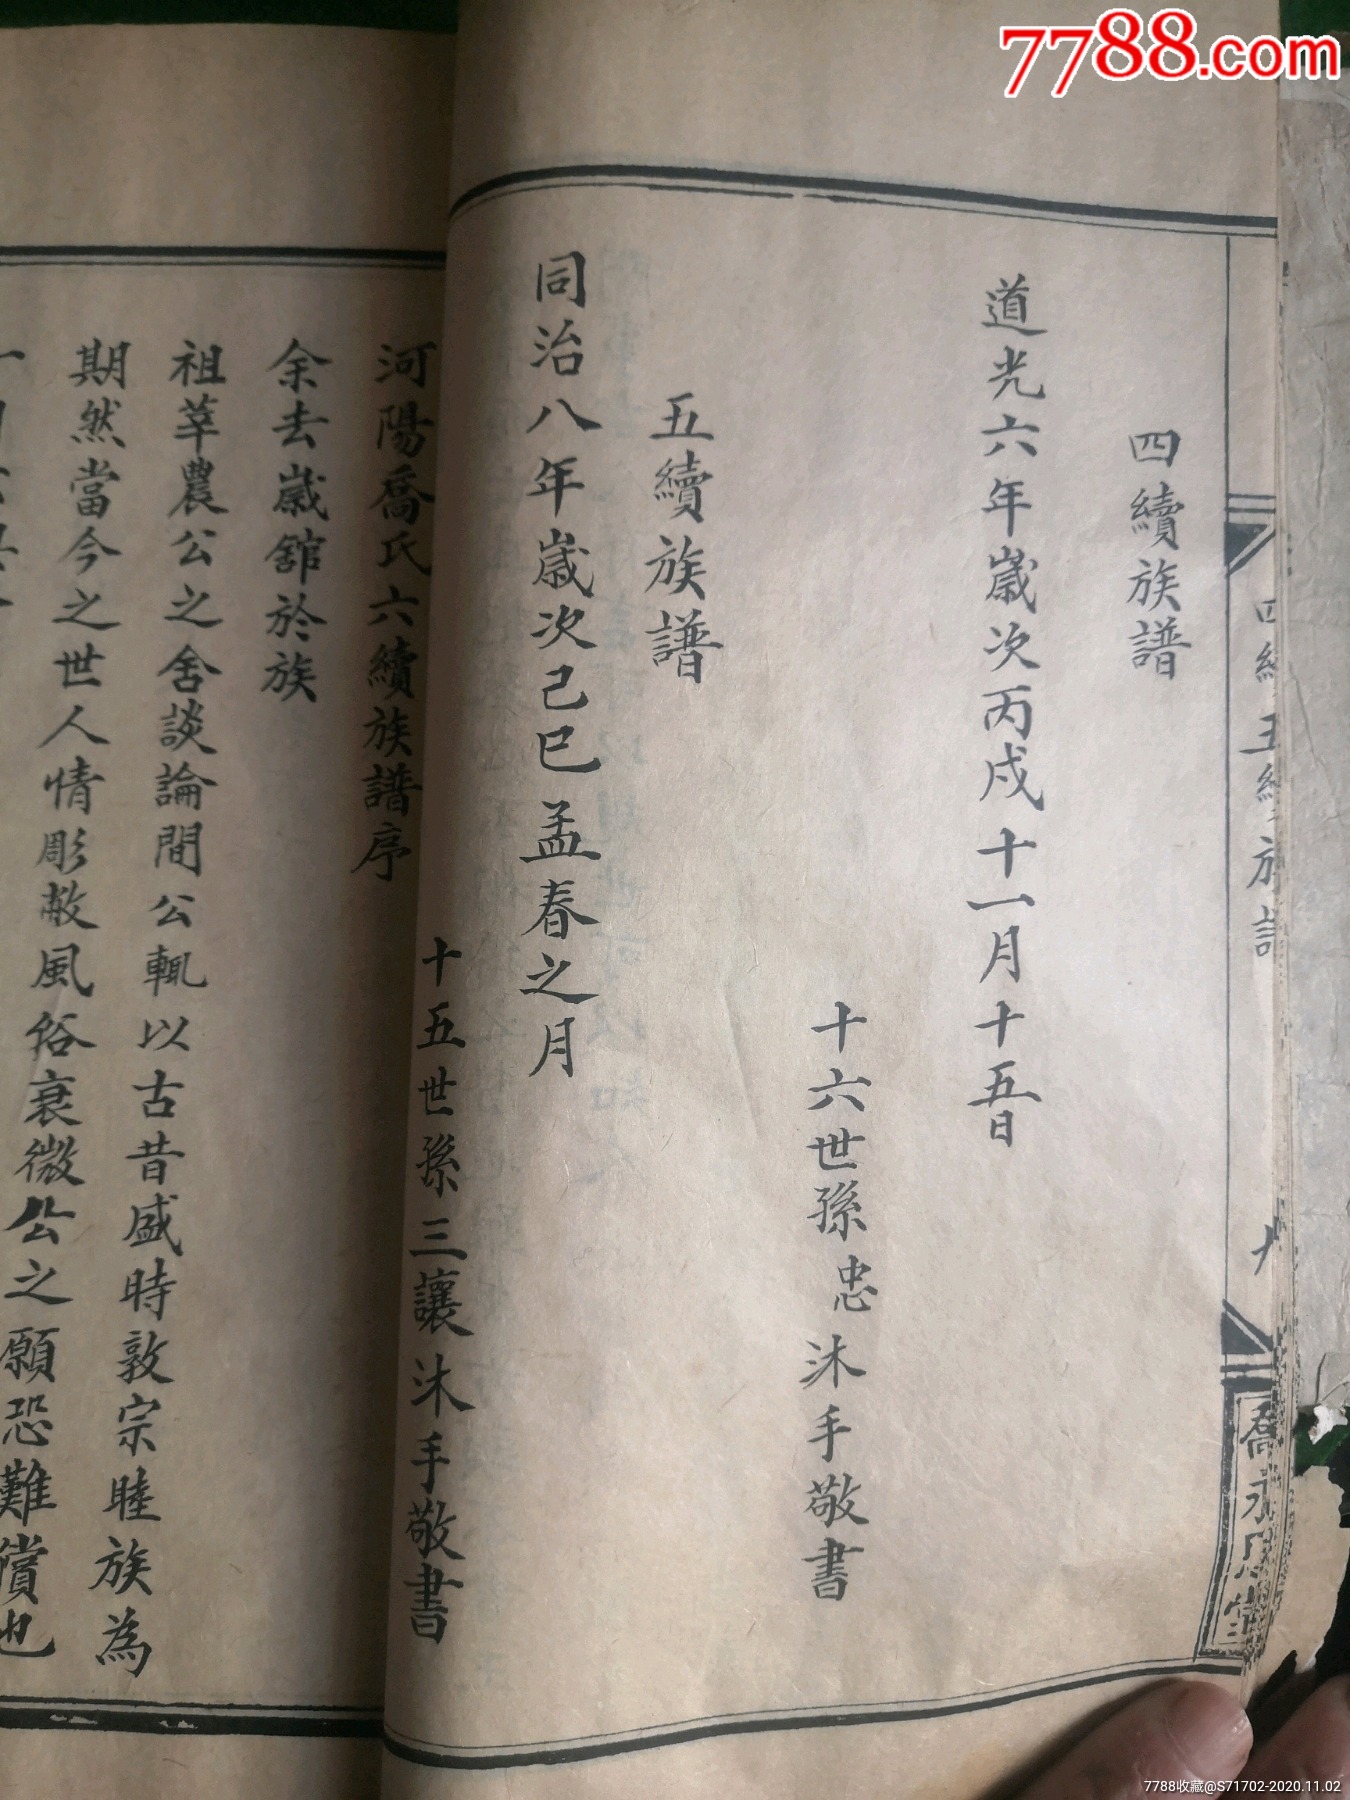 7788.com
四續族譜
道光六年歲次丙戌十一月十五日
十六世孫忠沐手敬書
五續族譜
同治八年歲次己巳孟春之月
十五世孫三讓沐手敬書
河陽喬氏六續族譜序
余去歲舘於族
祖莘農公之舍談論間公輒以古昔盛時敦宗睦族為
期然當今之世人情彫敝風俗衰微公之願恐難償也
四續五續族譜
喬永思堂
7788收藏@S71702-2020.11.02